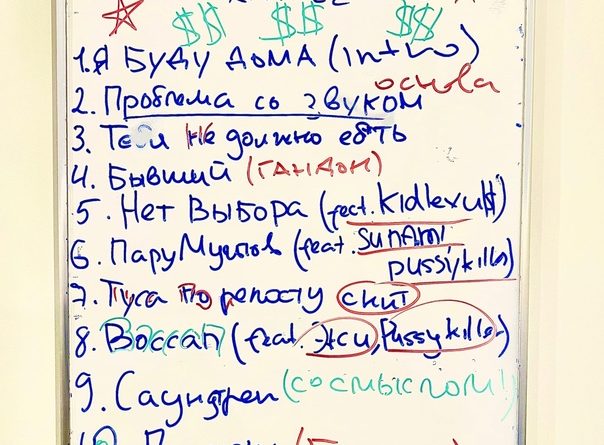 $$ $$ $$
1. Я БУДУ ДОМА (intro)
основа
2. Проблема со звуком
3. Тебя не должно ебать
4. Бывший (ГАНДОН)
5. Нет Выбора (feat. Kidlexu$)
6. Пару Мутов (feat. SUNAMI
pussykiller)
7. Туса по репосту скит
8. Воссап (feat. Эси, Pussykiller)
9. Саундтреп (со смыслом!)
10.